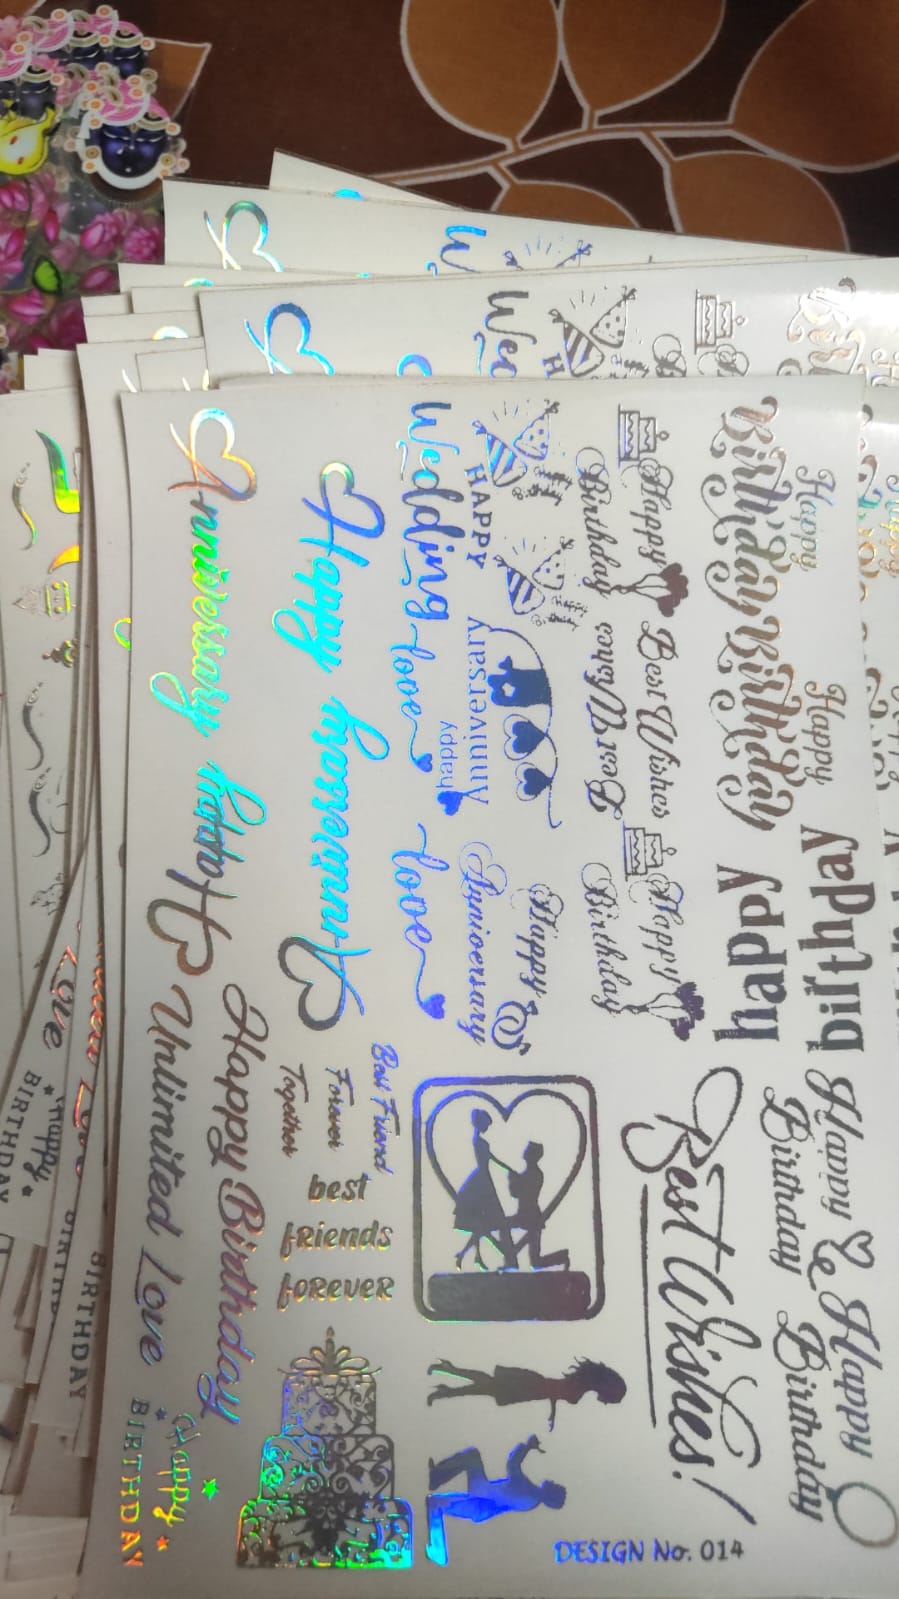 Happy
Birthday
Happy
Birthday
happy
birthday
Happy
Birthday
&
Happy
Birthday
Happy
Birthday
Best Wishes
Best Wishes
Happy
Birthday
Best Wishes!
DESIGN No. 014
HAPPY
Happy
Anniversary
happy
Anniversary
Wedding
love
love
Happy Anniversary
Best Friend
Forever
Together
best
friends
forever
Anniversary Happy
Happy Birthday
Unlimited Love
Happy
BIRTHDAY
Love
Happy
BIRTHDAY
BIRTHDAY